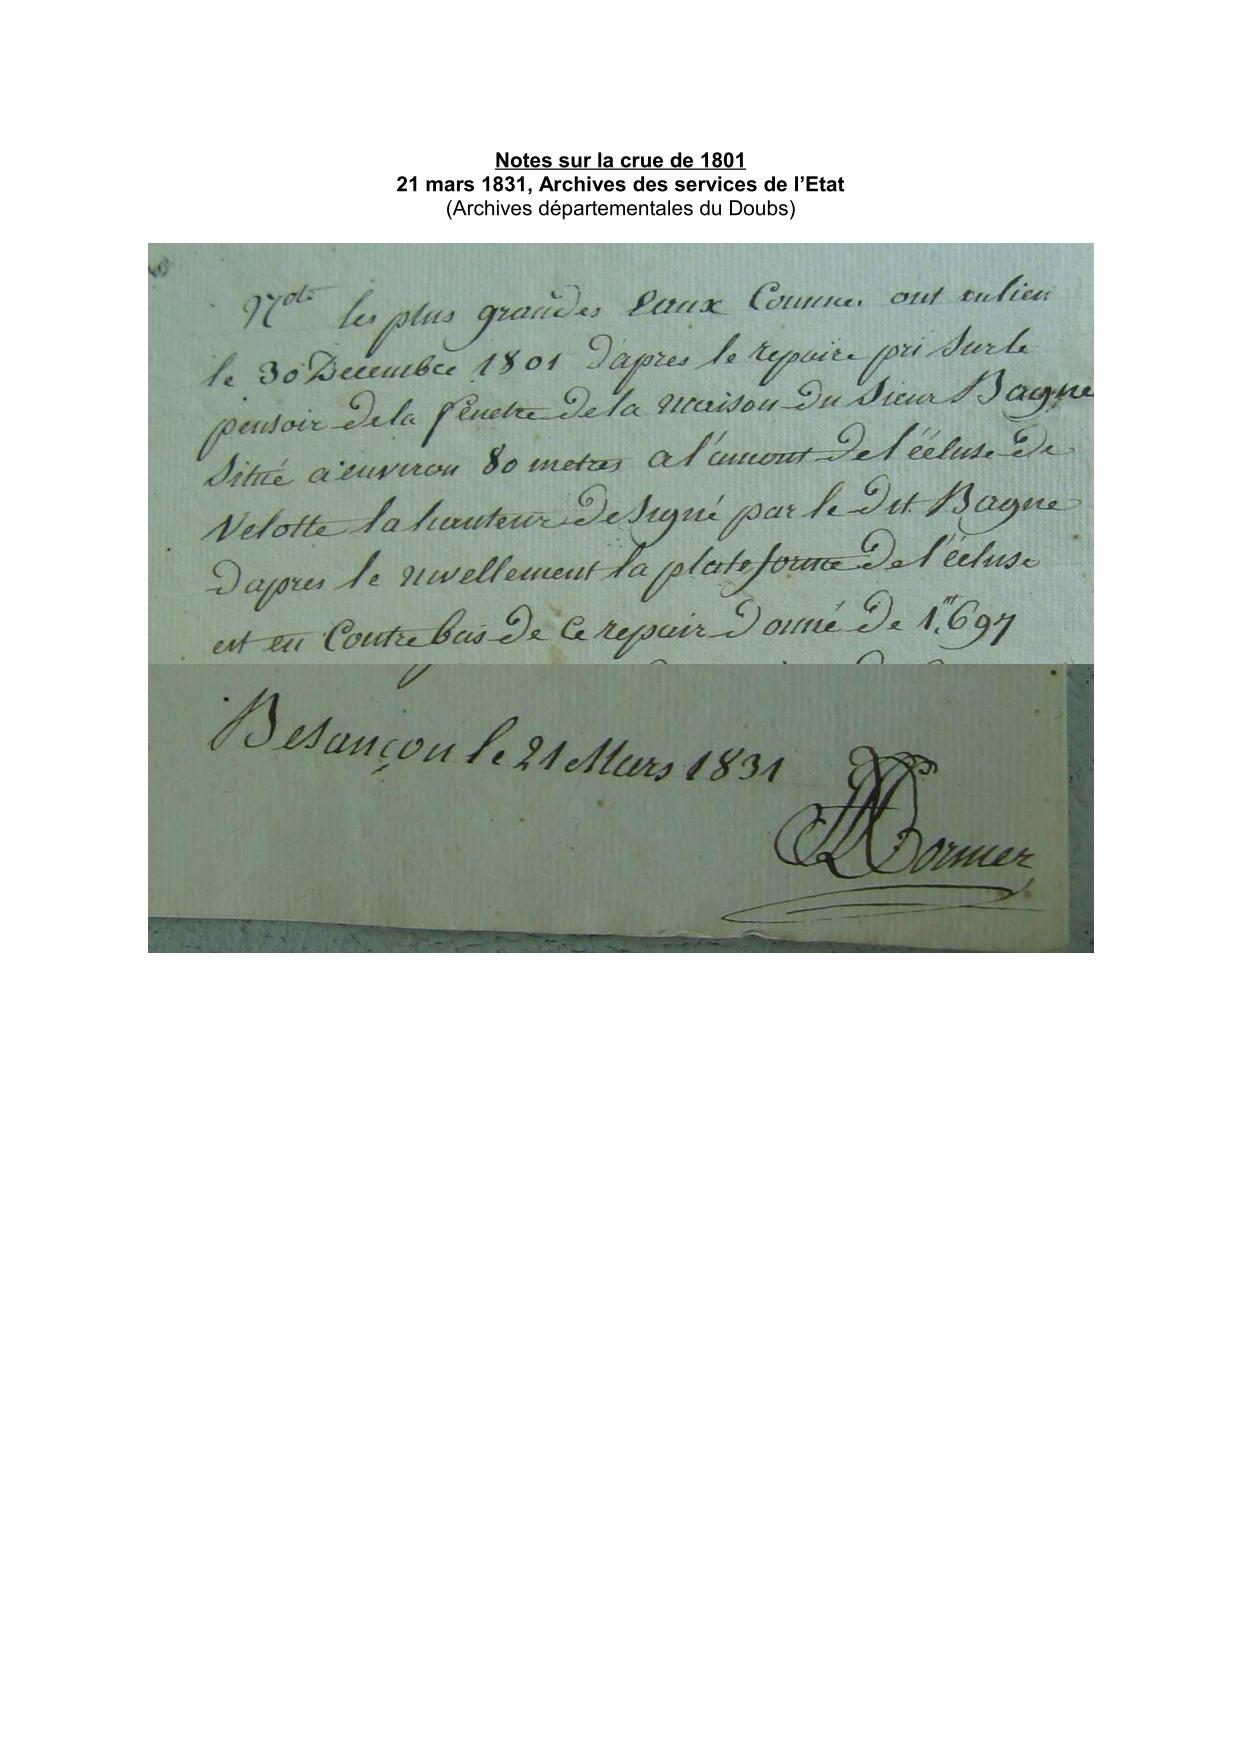 Notes sur la crue de 1801
21 mars 1831, Archives des services de l’Etat
(Archives départementales du Doubs)
Nota les plus grandes Eaux Connues ont eu lieu
le 30 Decembre 1801 d'apres le repaire pri sur le
pensoir de la fenetre de la maison du Sieur Bagne
Situé a environ 80 metres a l'amont de l'écluse de
Velotte la hauteur designé par le dit Bagne
d'apres le nivellement la plateforme de l'écluse
est en Contre bas de ce repair donné de 1.m697
Besançon le 21 Mars 1831